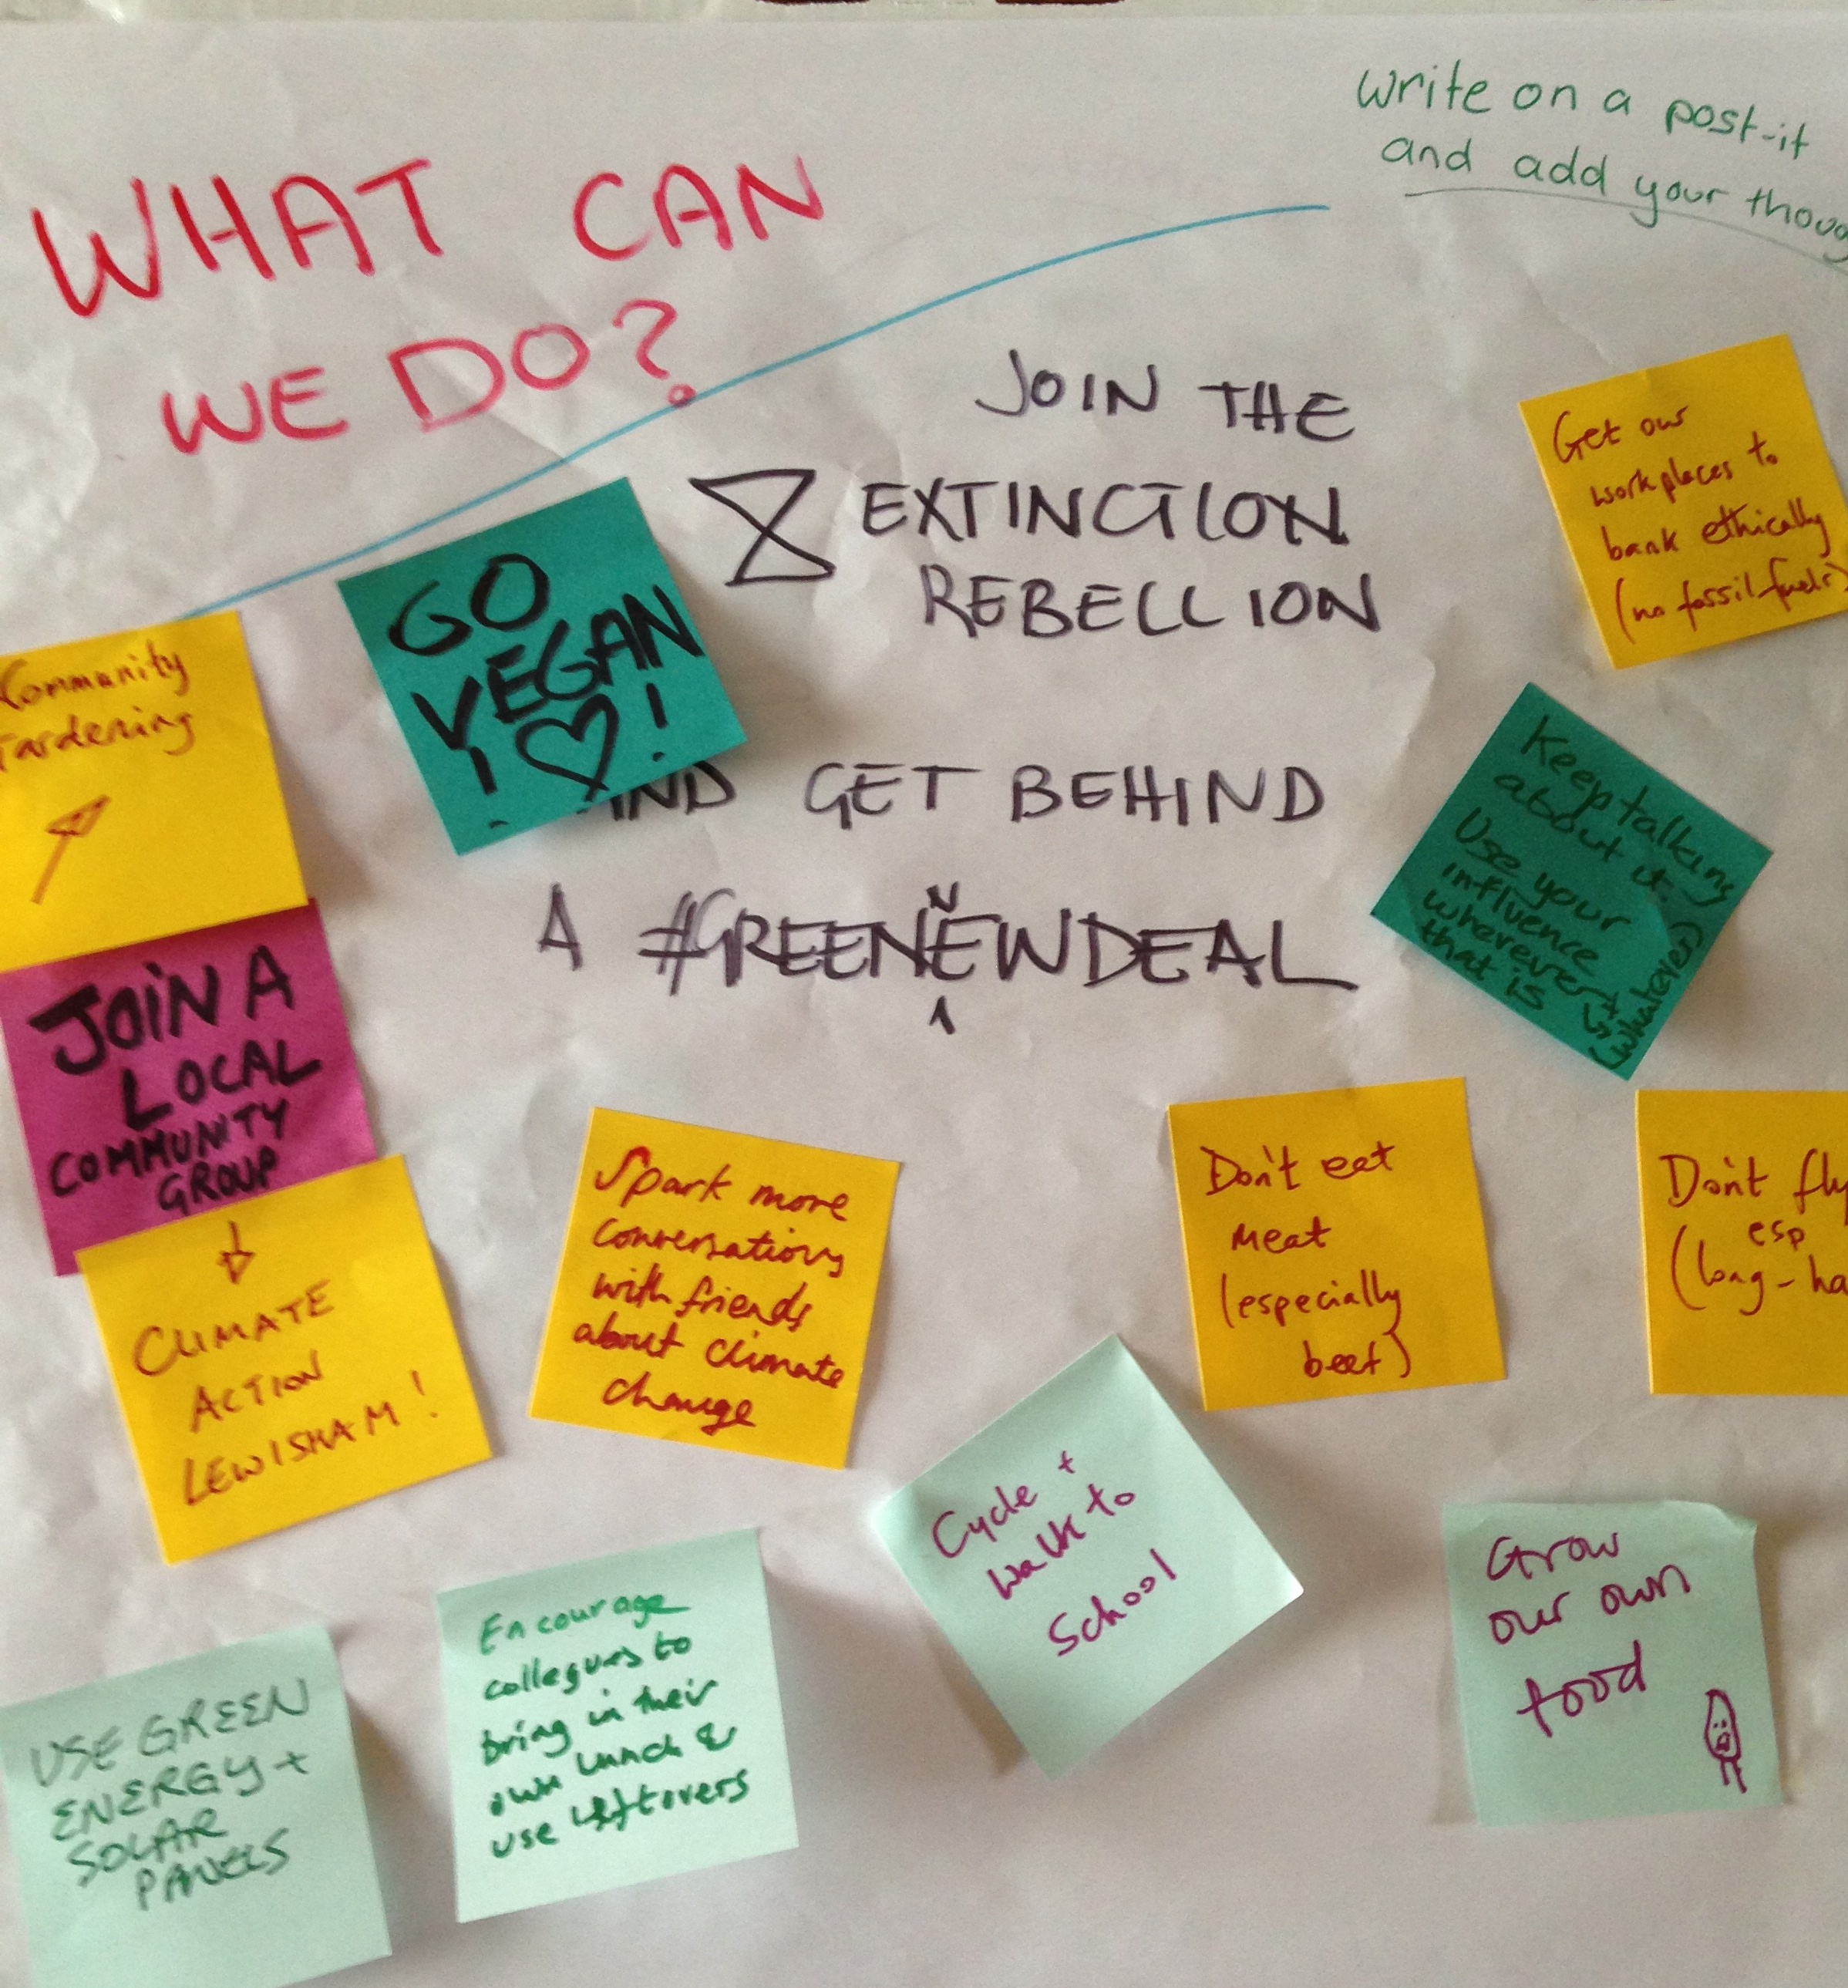 write on a post-it
and add your thoug
WHAT CAN
WE DO?
JOIN THE
EXTINCTION
REBELLION
AND GET BEHIND
A #GREENEWDEAL
N
GO
VEGAN
! ♡ !
Get our
workplaces to
bank ethically
(no fossil fuels)
Community
Gardening
Keep talking
about it.
Use your
influence
wherever +
that is
(whatever)
JOiN A
LOCAL
COMMUNITY
GROUP
CLIMATE
ACTION
LEWISHAM!
Spark more
conversations
with friends
about climate
change
Don't eat
meat
(especially
beef)
Don't fly
esp
(long-ha
Cycle +
walk to
School
Grow
our own
food
Encourage
collegues to
bring in their
own lunch &
use leftovers
USE GREEN
ENERGY +
SOLAR
PANELS